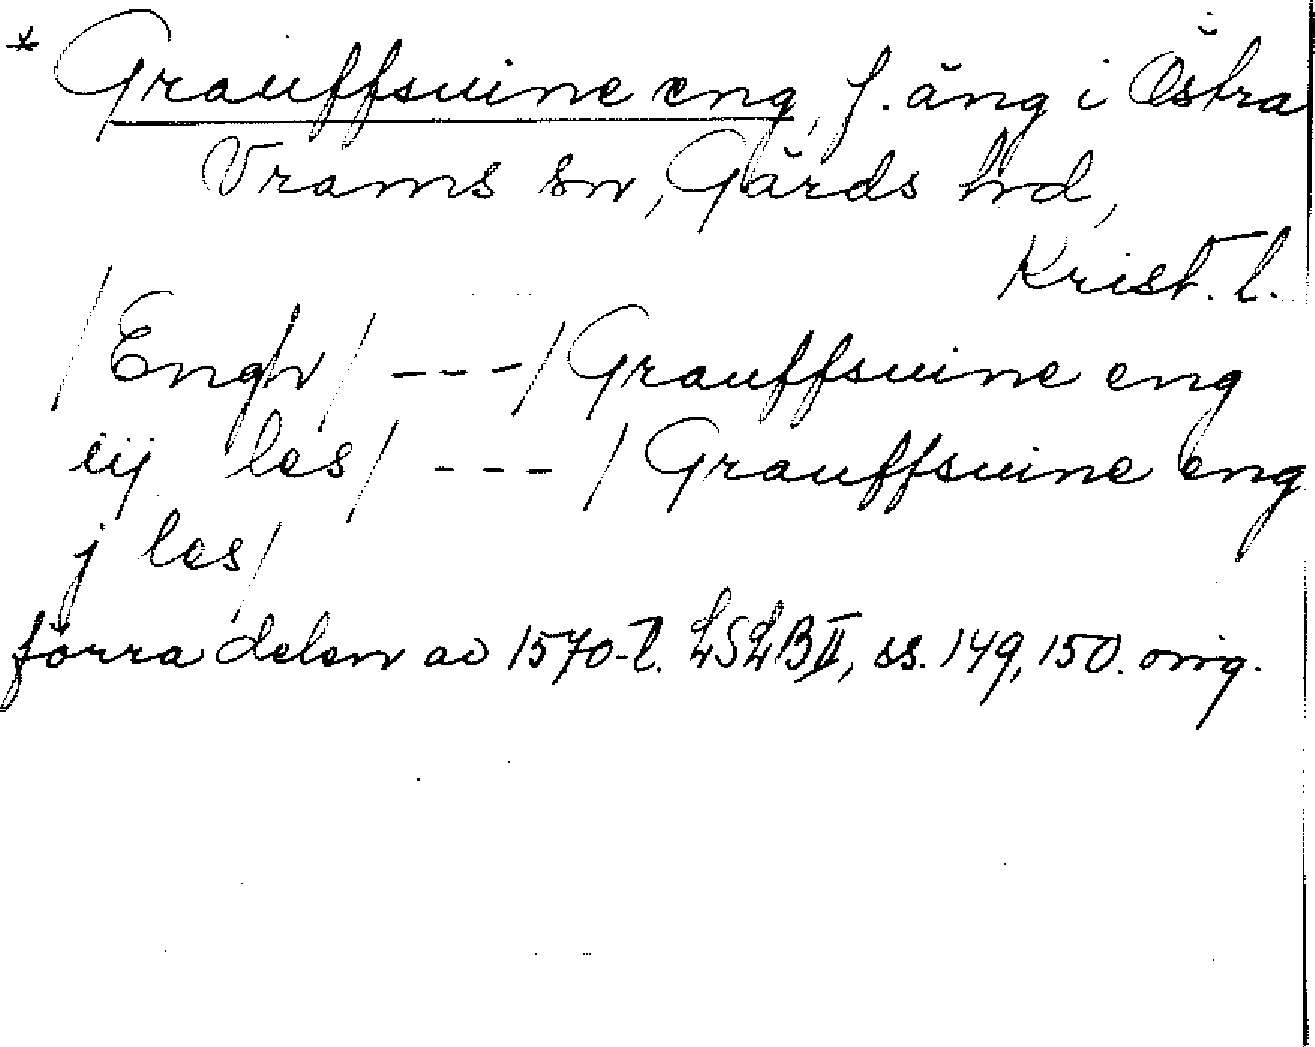 * Grauffsuine eng, f. äng i Östra
Vrams sn, Gärds hd,
Krist. l.
/Enghr/ --- /Grauffsuine eng
iij les/ --- /Grauffsuine eng
j les/
förra delen av 1570-t. LSLB II, ss. 149, 150. orig.